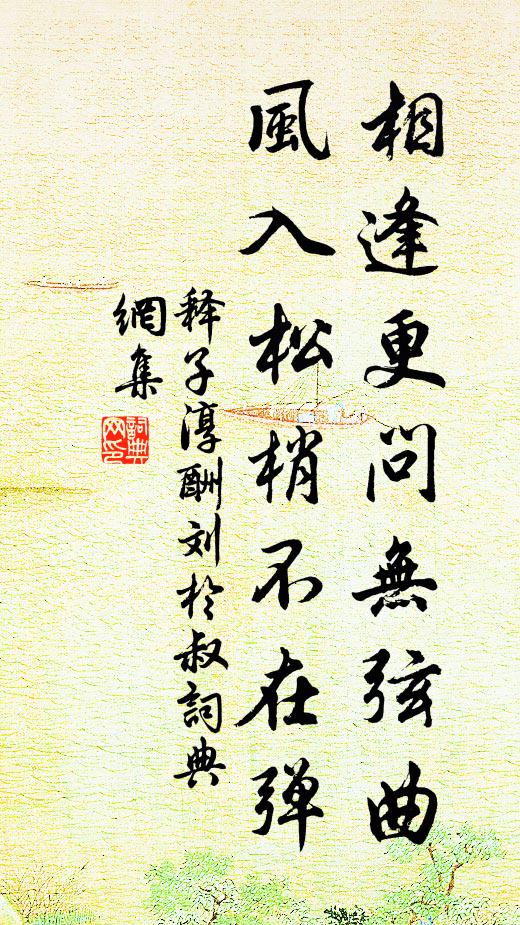 相逢更问無弦曲
風入松梢不在弹
释子淳酬刘於叔詞典
網集
詞典
网印